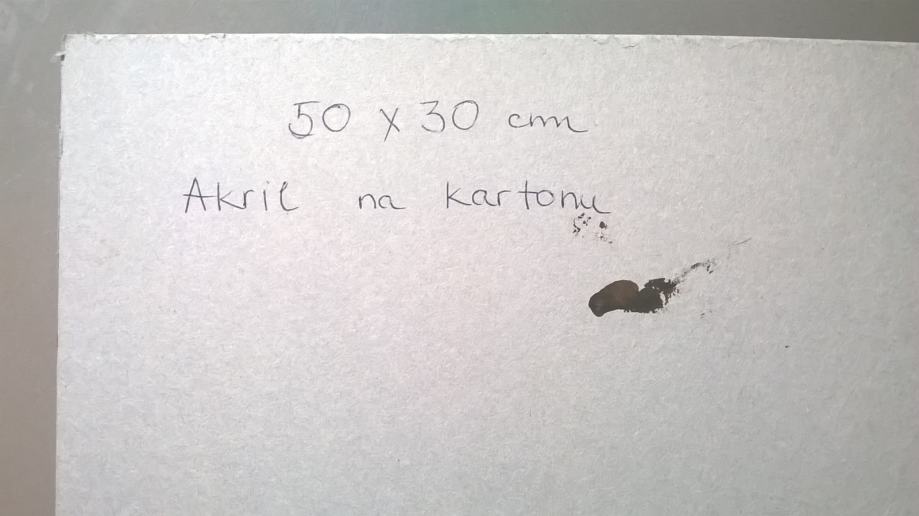 50 x 30 cm
Akril na kartonu